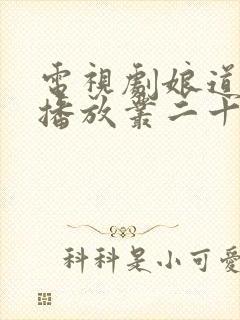 電視劇娘道
播放叢二十
科科是小可愛